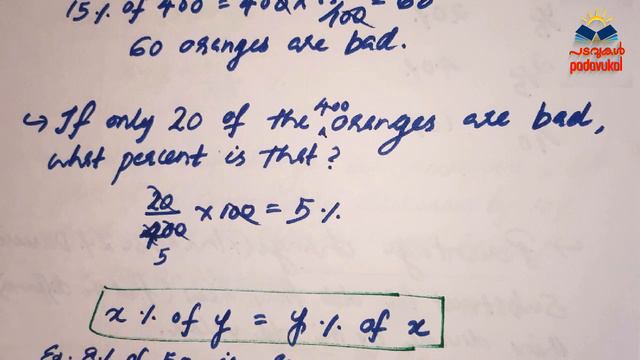 15% of 400 = 400 x 15/100 = 60
60 oranges are bad.
പടവുകൾ
padavukal
→ If only 20 of the 400 oranges are bad,
what percent is that?
20/400 x 100 = 5%
5
x % of y = y % of x
Ex: 8% of 50 is